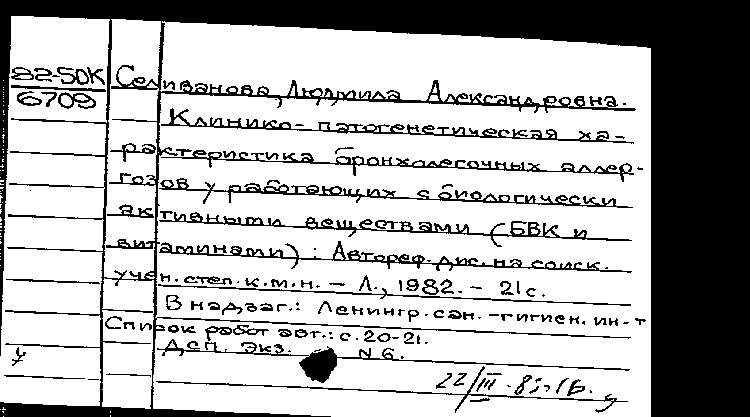 82-50К
6709
Селиванова, Людмила Александровна.
Клинико-патогенетическая ха-
рактеристика бронхолегочных аллер-
гозов у работающих с биологически
активными веществами (БВК и
витаминами): Автореф. дис. на соиск.
учен. степ. к.м.н. – Л., 1982. – 21с.
В надзаг.: Ленингр. сан.-гигиен. ин-т
Список работ авт.: с. 20-21.
Деп. экз. N 6.
22/III